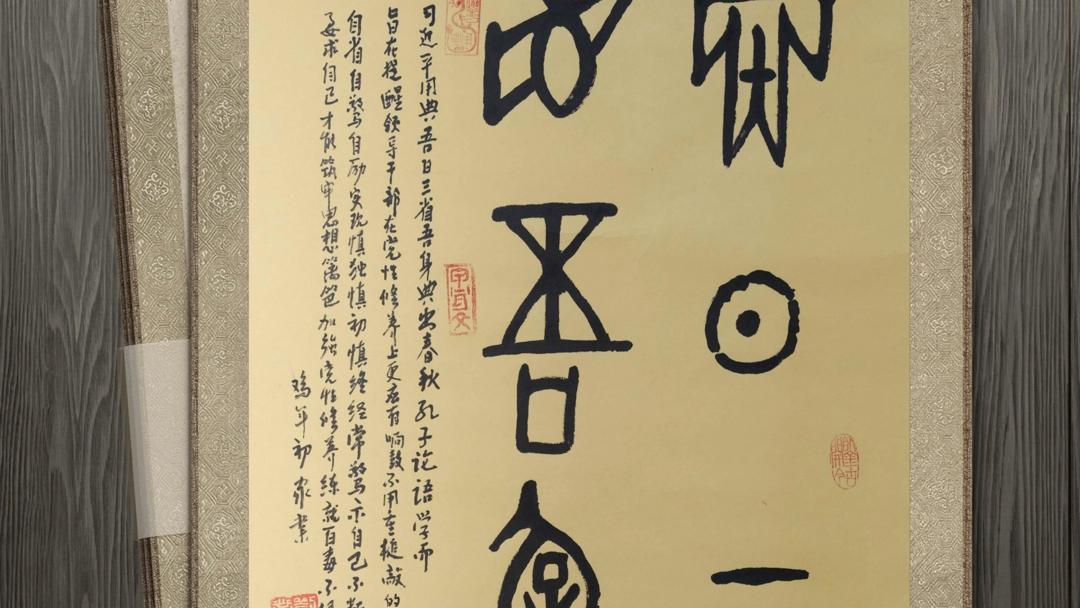 日
省吾身
习近平用典吾日三省吾身典出春秋孔子论语学而
旨在提醒领导干部在党性修养上更应有响鼓不用重槌敲的
自省自警自励实现慎独慎初慎终经常警示自己不
要求自己才能筑牢思想篱笆加强党性修养练就百毒不
鸡年初家业